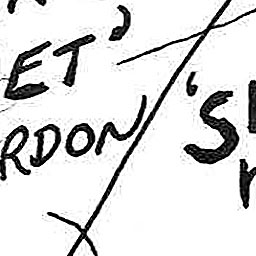 ET'
RDON
'S